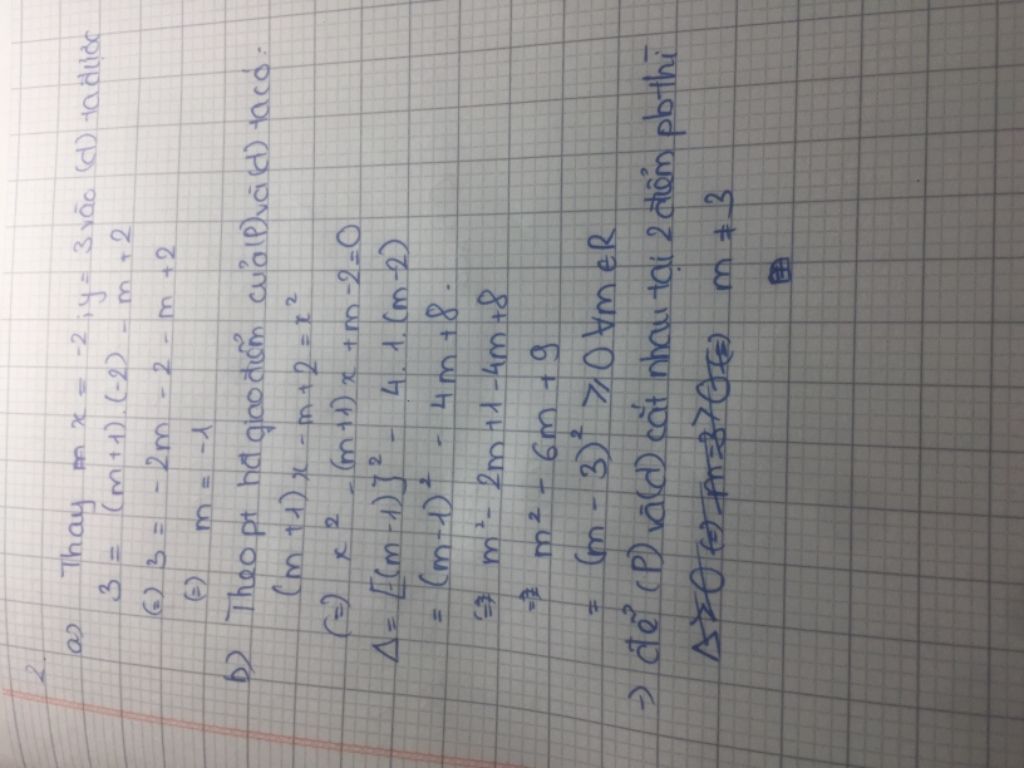 2.
a) Thay x = -2; y = 3 vào (d) ta được
3 = (m+1).(-2) - m + 2
(=) 3 = -2m - 2 - m + 2
(=) m = -1
b) Theo pt hđ giao điểm của (P) và (d) ta có:
(m+1)x - m + 2 = x²
(=) x² - (m+1)x + m - 2 = 0
Δ = [(m-1)]² - 4.1.(m-2)
= (m-1)² - 4m + 8.
=> m² - 2m + 1 - 4m + 8
=> m² - 6m + 9
= (m - 3)² ≥ 0 ∀m ∈ R
-> để (P) và (d) cắt nhau tại 2 điểm pb thì
Δ > 0 (=) m - 3 > 0 (=) m ≠ 3